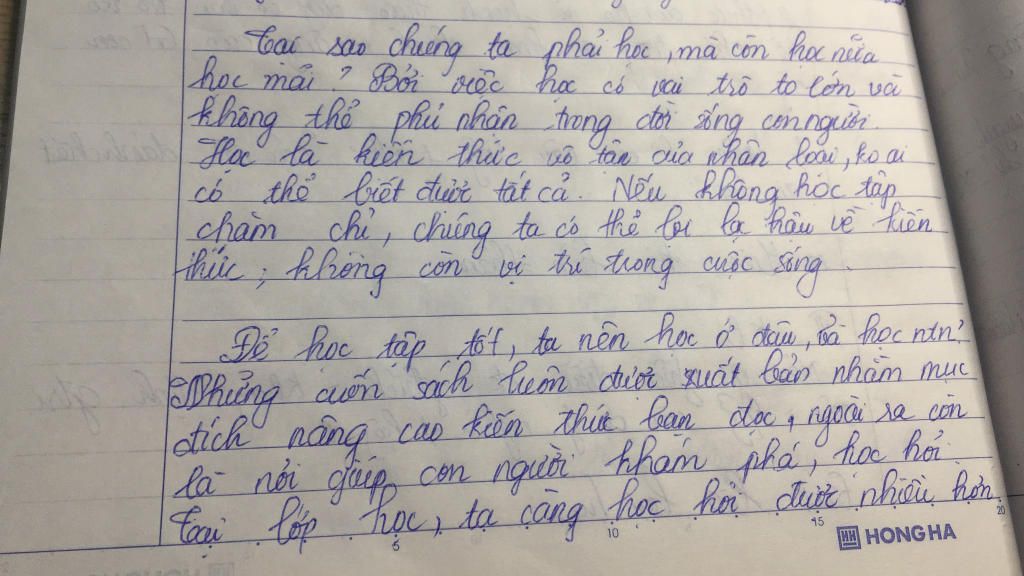 Tại sao chúng ta phải học, mà còn học nữa
học mãi? Bởi việc học có vai trò to lớn và
không thể phủ nhận trong đời sống con người.
Học là kiến thức vô tận của nhân loại, ko ai
có thể biết được tất cả. Nếu không học tập
chăm chỉ, chúng ta có thể lạc hậu về kiến
thức, không còn vị trí trong cuộc sống.
Để học tập tốt, ta nên học ở đâu, và học ntn?
Những cuốn sách luôn được xuất bản nhằm mục
đích nâng cao kiến thức bạn đọc, ngoài ra còn
là nơi giúp con người khám phá, học hỏi.
Tại lớp học, ta càng học hỏi được nhiều hơn
5 10 15 20
HH HONG HA